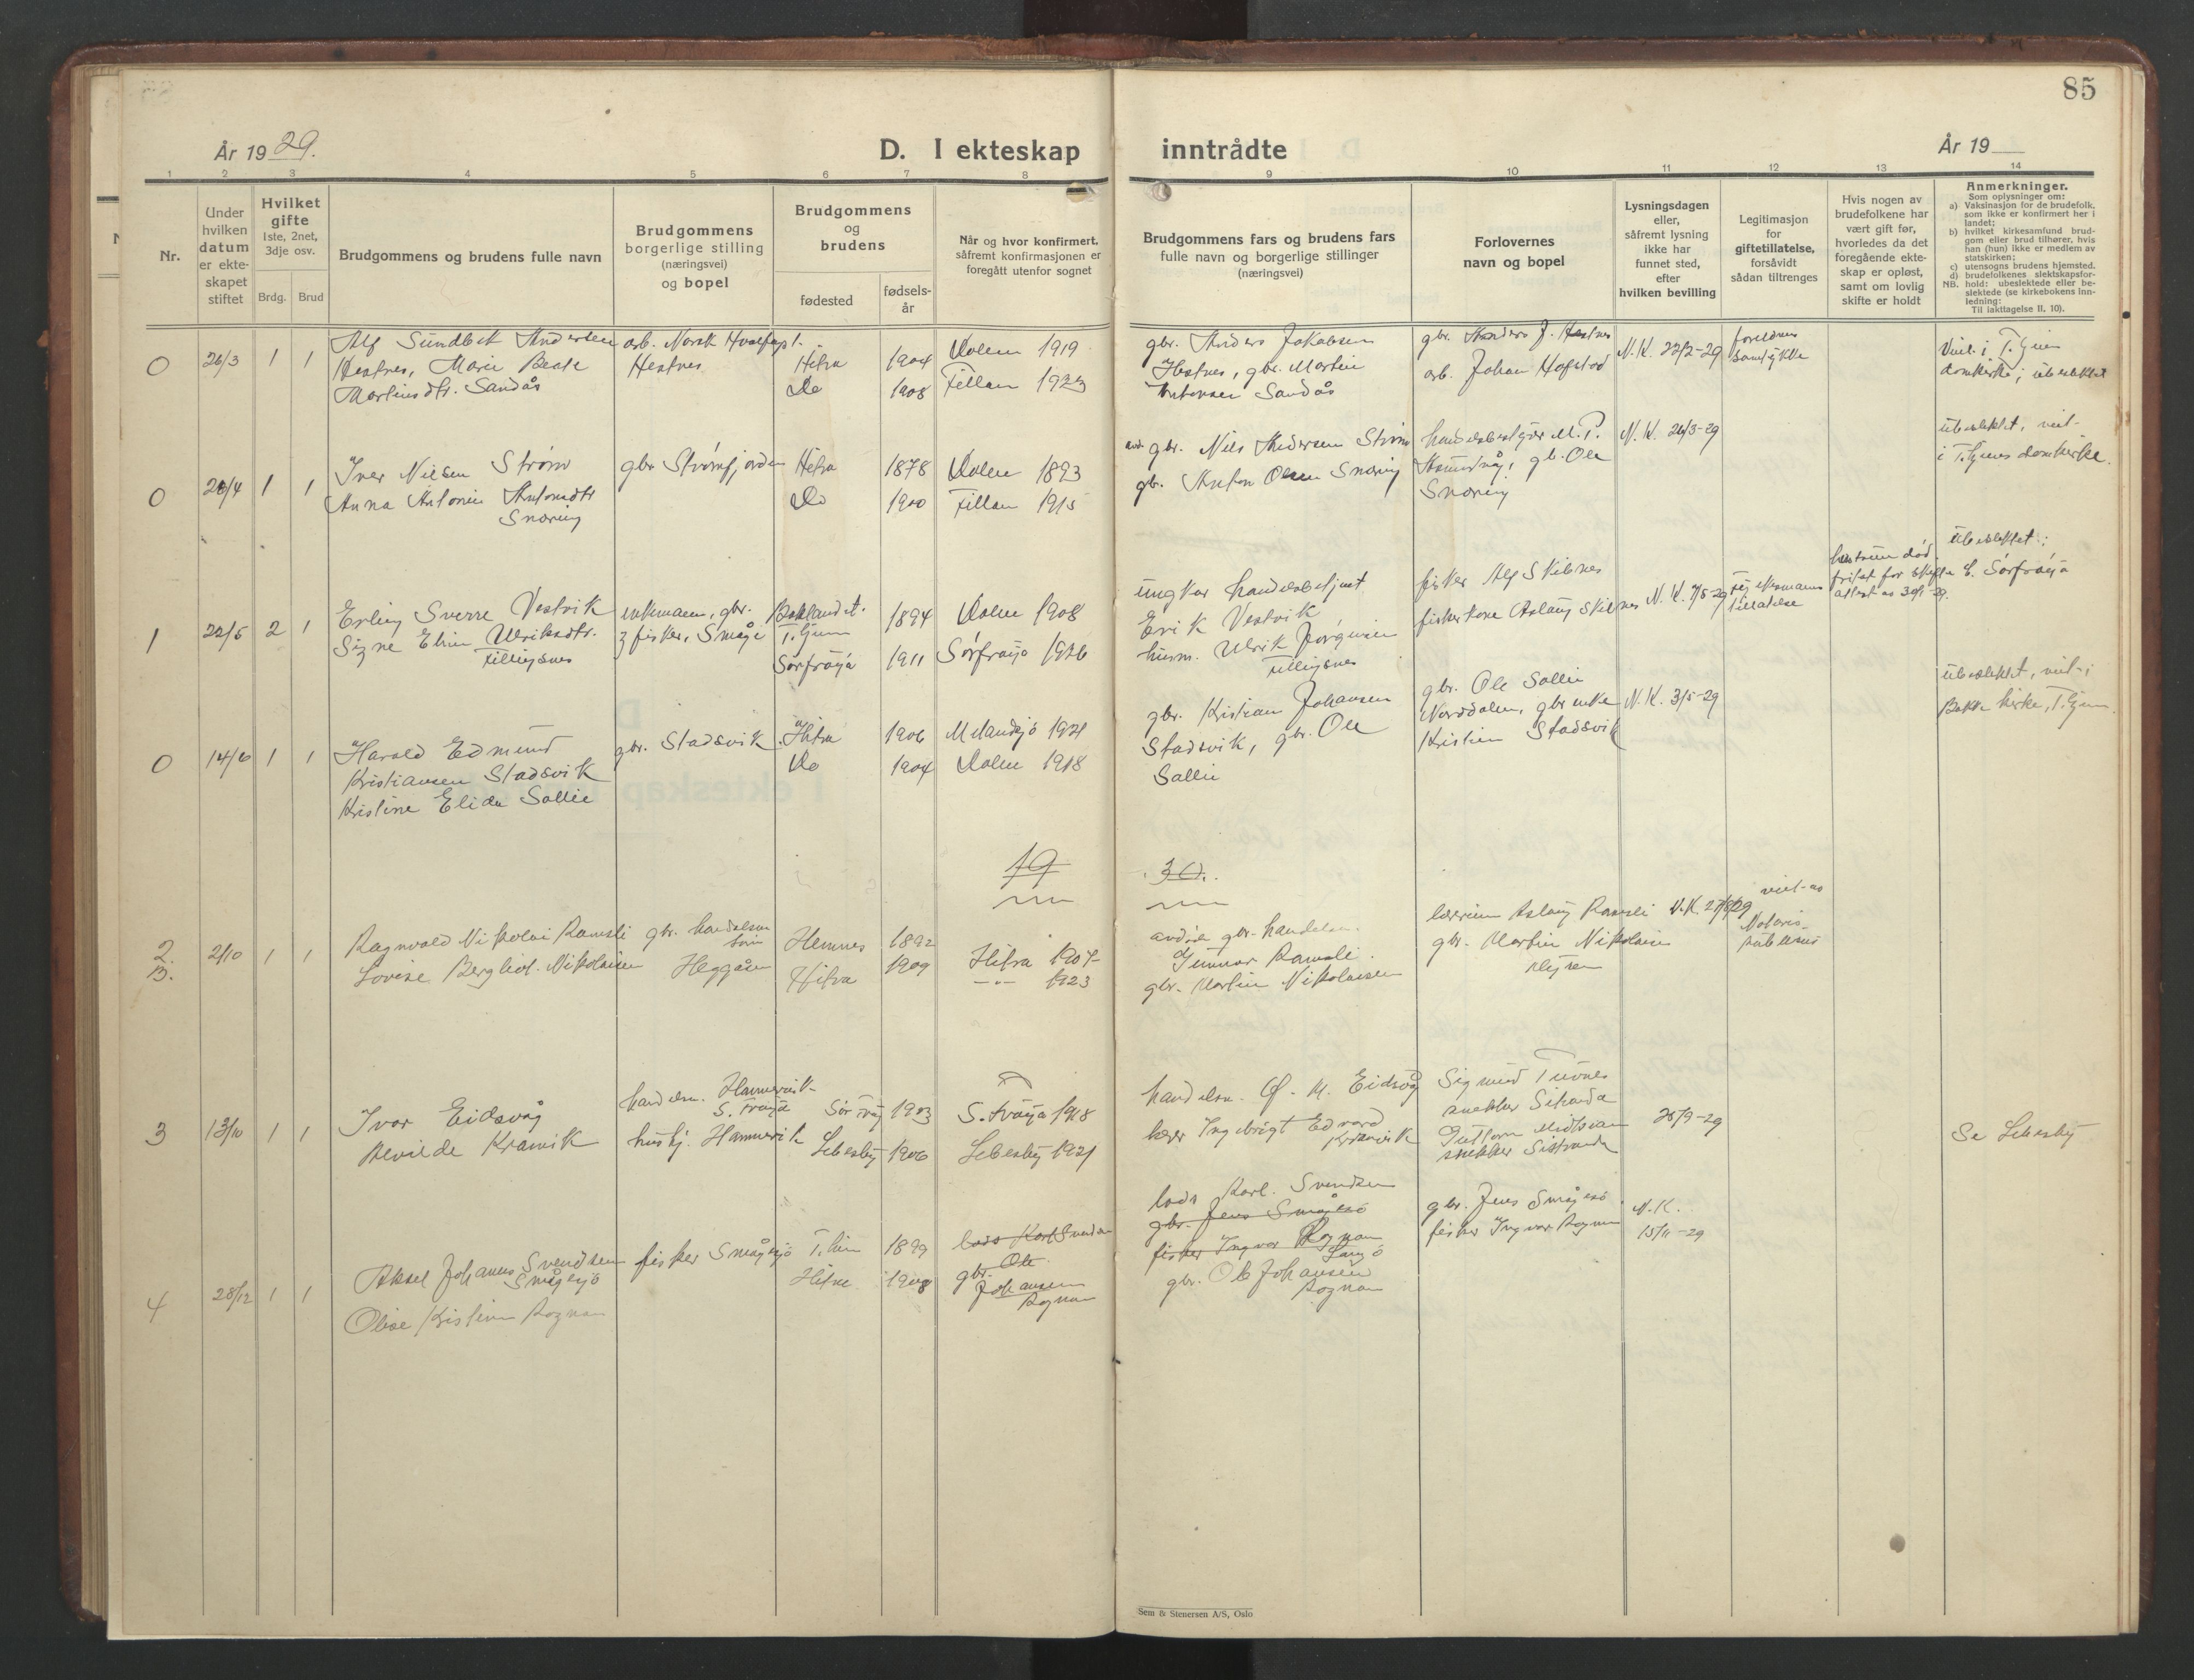 85
År 1929.
D. I ekteskap inntrådte
År 19
1 2 3 4 5 6 7 8 9 10 11 12 13 14
Nr.
Under
hvilken
datum
er ekte-
skapet
stiftet
Hvilket
gifte
1ste, 2net,
3dje osv.
Brdg. Brud
Brudgommens og brudens fulle navn
Brudgommens
borgerlige stilling
(næringsvei)
og bopel
Brudgommens
og
brudens
fødested
fødsels-
år
Når og hvor konfirmert,
såfremt konfirmasjonen er
foregått utenfor sognet
Brudgommens fars og brudens fars
fulle navn og borgerlige stillinger
(næringsvei)
Forlovernes
navn og bopel
Lysningsdagen
eller,
såfremt lysning
ikke har
funnet sted,
efter
hvilken bevilling
Legitimasjon
for
giftetillatelse,
forsåvidt
sådan tiltrenges
Hvis nogen av
brudefolkene har
vært gift før,
hvorledes da det
foregående ekte-
skap er opløst,
samt om lovlig
skifte er holdt
Anmerkninger.
Som oplysninger om:
a) Vaksinasjon for de brudefolk,
som ikke er konfirmert her i
landet;
b) hvilket kirkesamfund brud-
gom eller brud tilhører, hvis
han (hun) ikke er medlem av
statskirken;
c) utensogns brudens hjemsted.
d) brudefolkenes slektskapsfor-
NB. hold: ubeslektede eller be-
slektede (se kirkebokens Inn-
ledning:
Til iakttagelse II, 10).
0 26/3 1 1
Alf Sundbet Andersen
Hestnes, Marie Beate
Martinsdtr. Sandås
arb. Norsk Hvalfangst.
Hestnes
Hitra 1904 Dolm 1919
Do 1908 Fillan 1923
gbr. Anders Jakobsen
Hestnes, gbr. Martin
Antonsen Sandås
gbr. Anders J. Hestnes
arb. Johan Hofstad
N.K. 22/2-29
foreldres
samtykke
Viet i T.hjem
domkirke; ubeslektet
0 20/4 1 1
Iver Nielsen Strøm
Anna Antonie Antonsdtr
Snøring
gbr Strømfjorden
Hitra 1878 Dolm 1893
Do 1900 Fillan 1915
gbr. Nils Andersen Strøm
gbr. Anton Olsen Snøring
handelsbestyrer M. P.
Asmundvåg, gb. Ole
Snøring
N.K. 26/3-29
ubeslektet, viet
i T.hjems domkirke.
1 22/5 2 1
Erling Sverre Vestvik
Signe Elin Ulriksdtr.
Fillingsnes
enkmann, gbr.
& fisker, Småge
Baklandet.
T.hjem 1894 Dolm 1908
Sørfrøya 1911 Sørfrøya 1926
ungkar handelsbetjent
Erik Vestvik
husm. Ulrik Jørgensen
Fillingsnes
fisker Alf Skilnes
fiskerkone Aslaug Skilnes
N.K. 7/5-29
tillatelse
hustruen død
fritat for skifte
attest av 30/1-29.
ubeslektet;
b. Sørfrøya
0 14/6 1 1
Harald Edmund
Kristiansen Stadsvik
Kristine Elida Sollie
gbr. Stadsvik
Hitra 1906 Melandsjø 1921
Do 1904 Dolm 1918
gbr. Kristian Johansen
Stadsvik, gbr. Ole
Sollie
gbr. Ole Sollie
Norddalen, gbr enke
Kristin Stadsvik
N.K. 3/5-29
ubeslektet, viet i
Bakke kirke, T.hjem.
19 30.
2. 2/10 1 1
Ragnvald Nikolai Ramsli
Lovise Bergliot Nikolaisen
gbr. handelsm
Heggåsen
Hemnes 1892 Hitra 1907
Hitra 1909 -"- 1923
gbr. handelsm.
Gunnar Ramsli.
gbr. Martin Nikolaisen
lærerinne Aslaug Ramsli
gbr. Martin Nikolaisen
N.K. 27/8/29
Notarius
publicus
3 13/10 1 1
Ivar Eidsvåg
Alvilde Kramvik
handelsm. Hammervik
S. Frøya
hushj. Hammervik
Sør Frøy 1903 S. Frøya 1918
Lebesby 1906 Lebesby 1921
handelsm. O. M. Eidsvåg
lærer Ingebrigt Edvard
Kramvik
Sigmund Tuvnes
snekker Sistranda
Guttorm Midtsian
snekker Sistranda
28/9-29
Se Lebesby
4 28/12 1 1
Aksel Johannes Svendsen
Smågesjø
Olise Kristine Rognan
fisker Smågesjø
T.hiem 1899
Hitra 1908
lods Karl Svendsen
gbr. Ole
Johansen
Rognan
lods Karl. Svendsen
gbr. Jens Smågesjø
fisker Ingvar Rognan
gbr. Ole Johansen
Rognan
gbr. Jens Smågesjø
fisker Ingvar Rognan
N.K.
15/11-29
Sem & Stenersen A/S, Oslo